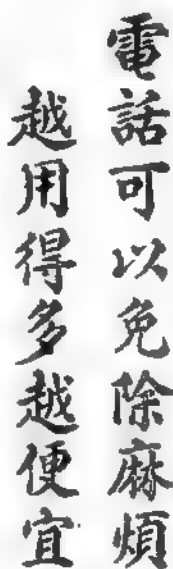 電話可以免除麻煩
越用得多越便宜